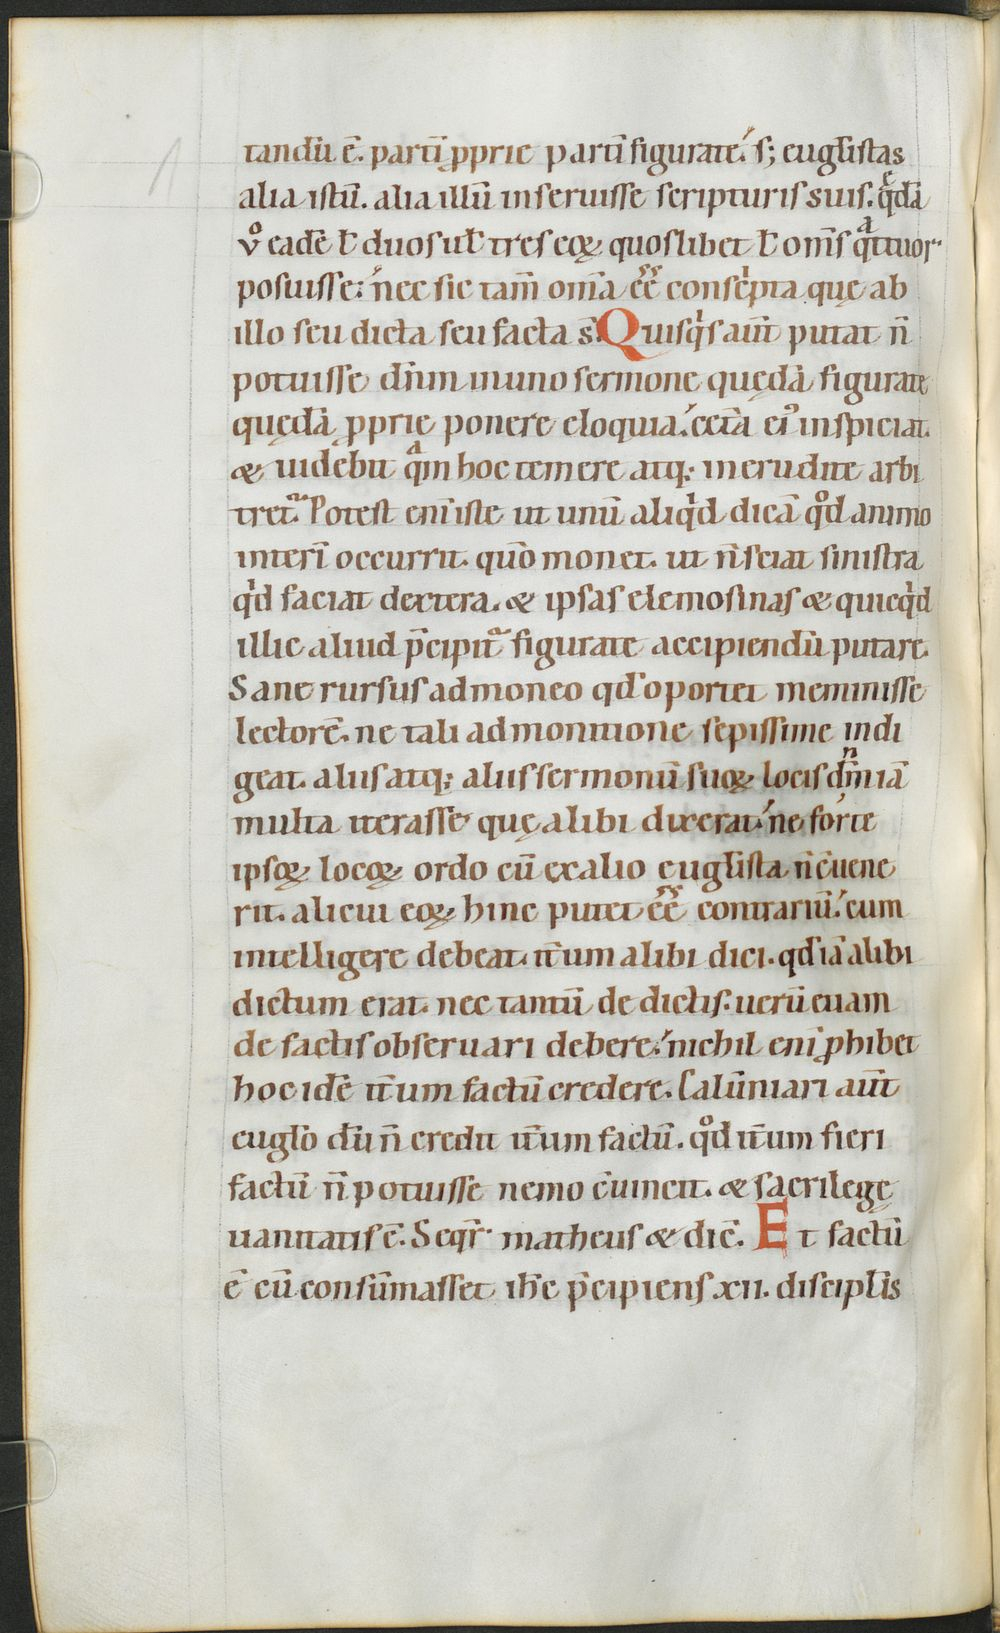 tandū ē. partī ꝓprie partī figurate. s; euglistas
alia istū. alia illū inseruisse scripturis suis. q̄dā
v̊ eadē ł duos uł tres eoꝝ quoslibet ł om̄s qͣttuor
posuisse. nec sic tam̄ om̄ia ēē consc̍pta quę ab
illo seu dicta seu facta s̄. Quisq̍s aūt putat n̄
potuisse dn̄m in uno sermone quędā figurate
quędā ꝓprie ponere eloquia. cet̄a eiꝰ inspiciat.
& uidebit qͣm hoc temere atq; inerudite arbi
tret᷑. Potest eni iste ut unū aliq̍d dicā qͦd animo
interī occurrit. quō monet. ut n̄ sciat sinistra
q̍d faciat dextera. & ipsas elemosinas & quicq̍d
illic aliud p̄cipit᷑ figurate accipiendū putare.
Sane rursus admoneo qd̓ oportet meminisse
lectorē. ne tali admonitione sepissime indi
geat. aliis atq; aliis sermonū suoꝝ locis dn̄m iā
multa iterasse quę alibi dixerat. ne forte
ipsoꝝ locoꝝ ordo cū ex alio euglista n̄ c̄uene
rit. alicui eoꝝ hinc putet ēē contrariū. cum
intelligere debeat. it̄um alibi dici. qd̓ iā alibi
dictum erat. nec tantū de dictis. uerū etiam
de factis obseruari debere. nichil eni ꝓhibet
hoc idē it̄um factū credere. Calūniari aūt
euglō dū n̄ credit it̄um factū. qͦd it̄um fieri
factū n̄ potuisse nemo c̄uincit. & sacrilegę
uanitatis ē. Seqr̄ matheus & dic̄. Et factū
ē cū consūmasset ih̄c p̄cipiens xii. disciplis